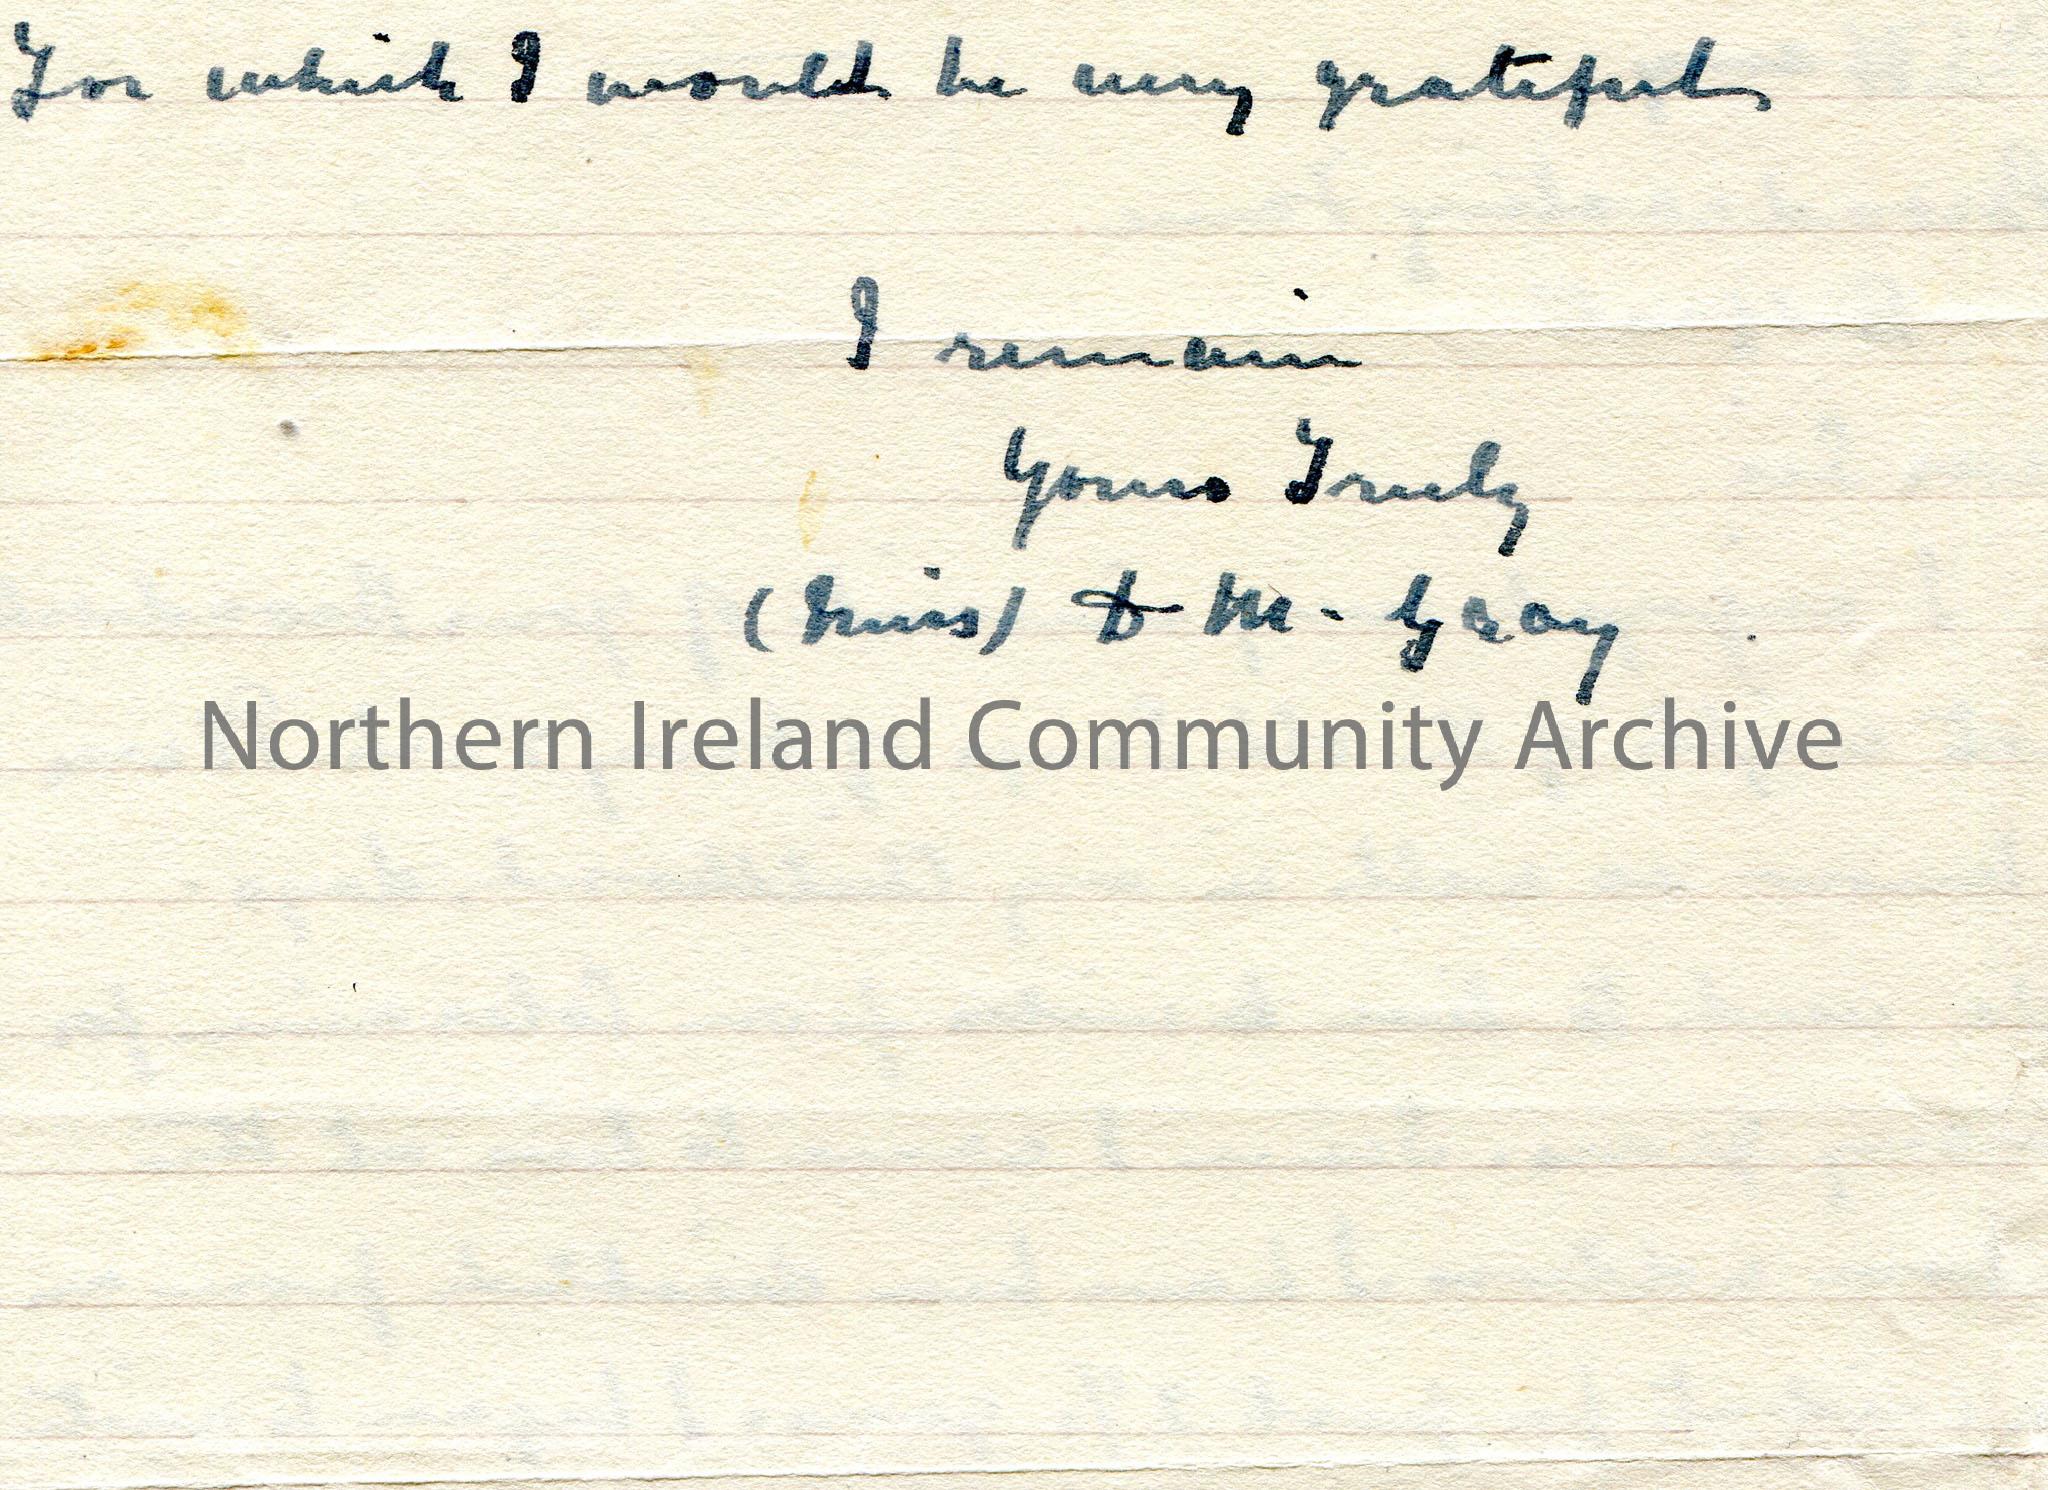 For which I would be very grateful,
I remain
Yours Truly
(Miss) D M. Gray
Northern Ireland Community Archive